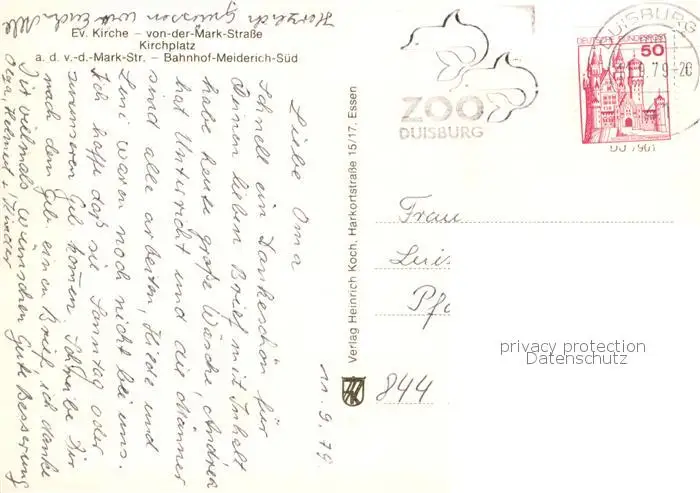 Ev. Kirche – von-der-Mark-Straße
Kirchplatz
a. d. v.-d.-Mark-Str. – Bahnhof-Meiderich-Süd
11.9.79.
Liebe Oma
Schnell ein Dankeschön für
Deinen lieben Brief mit Inhalt
habe heute große Wäsche, Andrea
hat Unterricht und die Männer
sind alle arbeiten, Heide und
waren noch nicht bei uns.
Ich hoffe daß sie Sonntag oder
kommen. Schreibe Dir
nach dem einen Brief ich danke
Dir vielmals wünschen Gute Besserung
Olga, Helmut + Kinder
Herzlich grüssen
Verlag Heinrich Koch, Harkortstraße 15/17, Essen
ZOO
DUISBURG
DUISBURG
DEUTSCHE BUNDESPOST
50
9.79-20
Frau
Luis
Pfa
844
privacy protection
Datenschutz